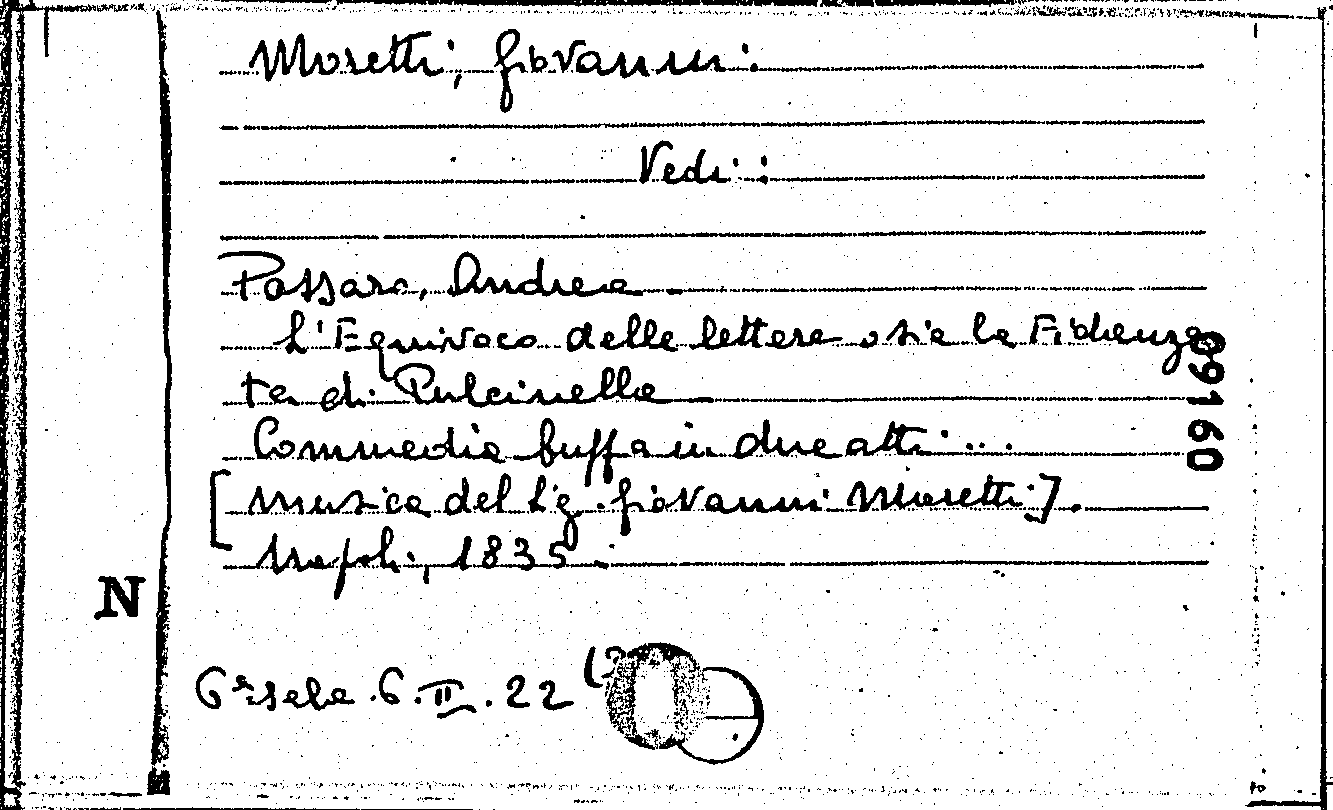 Moretti, Giovanni.
Vedi:
Passaro, Andrea
L'Equivoco delle lettere osia la Fidanza
ta di Pulcinella
Commedia buffa in due atti...
[musica del Sig. Giovanni Moretti].
Napoli, 1835.
09160
N
6ª sala. 6. II. 22